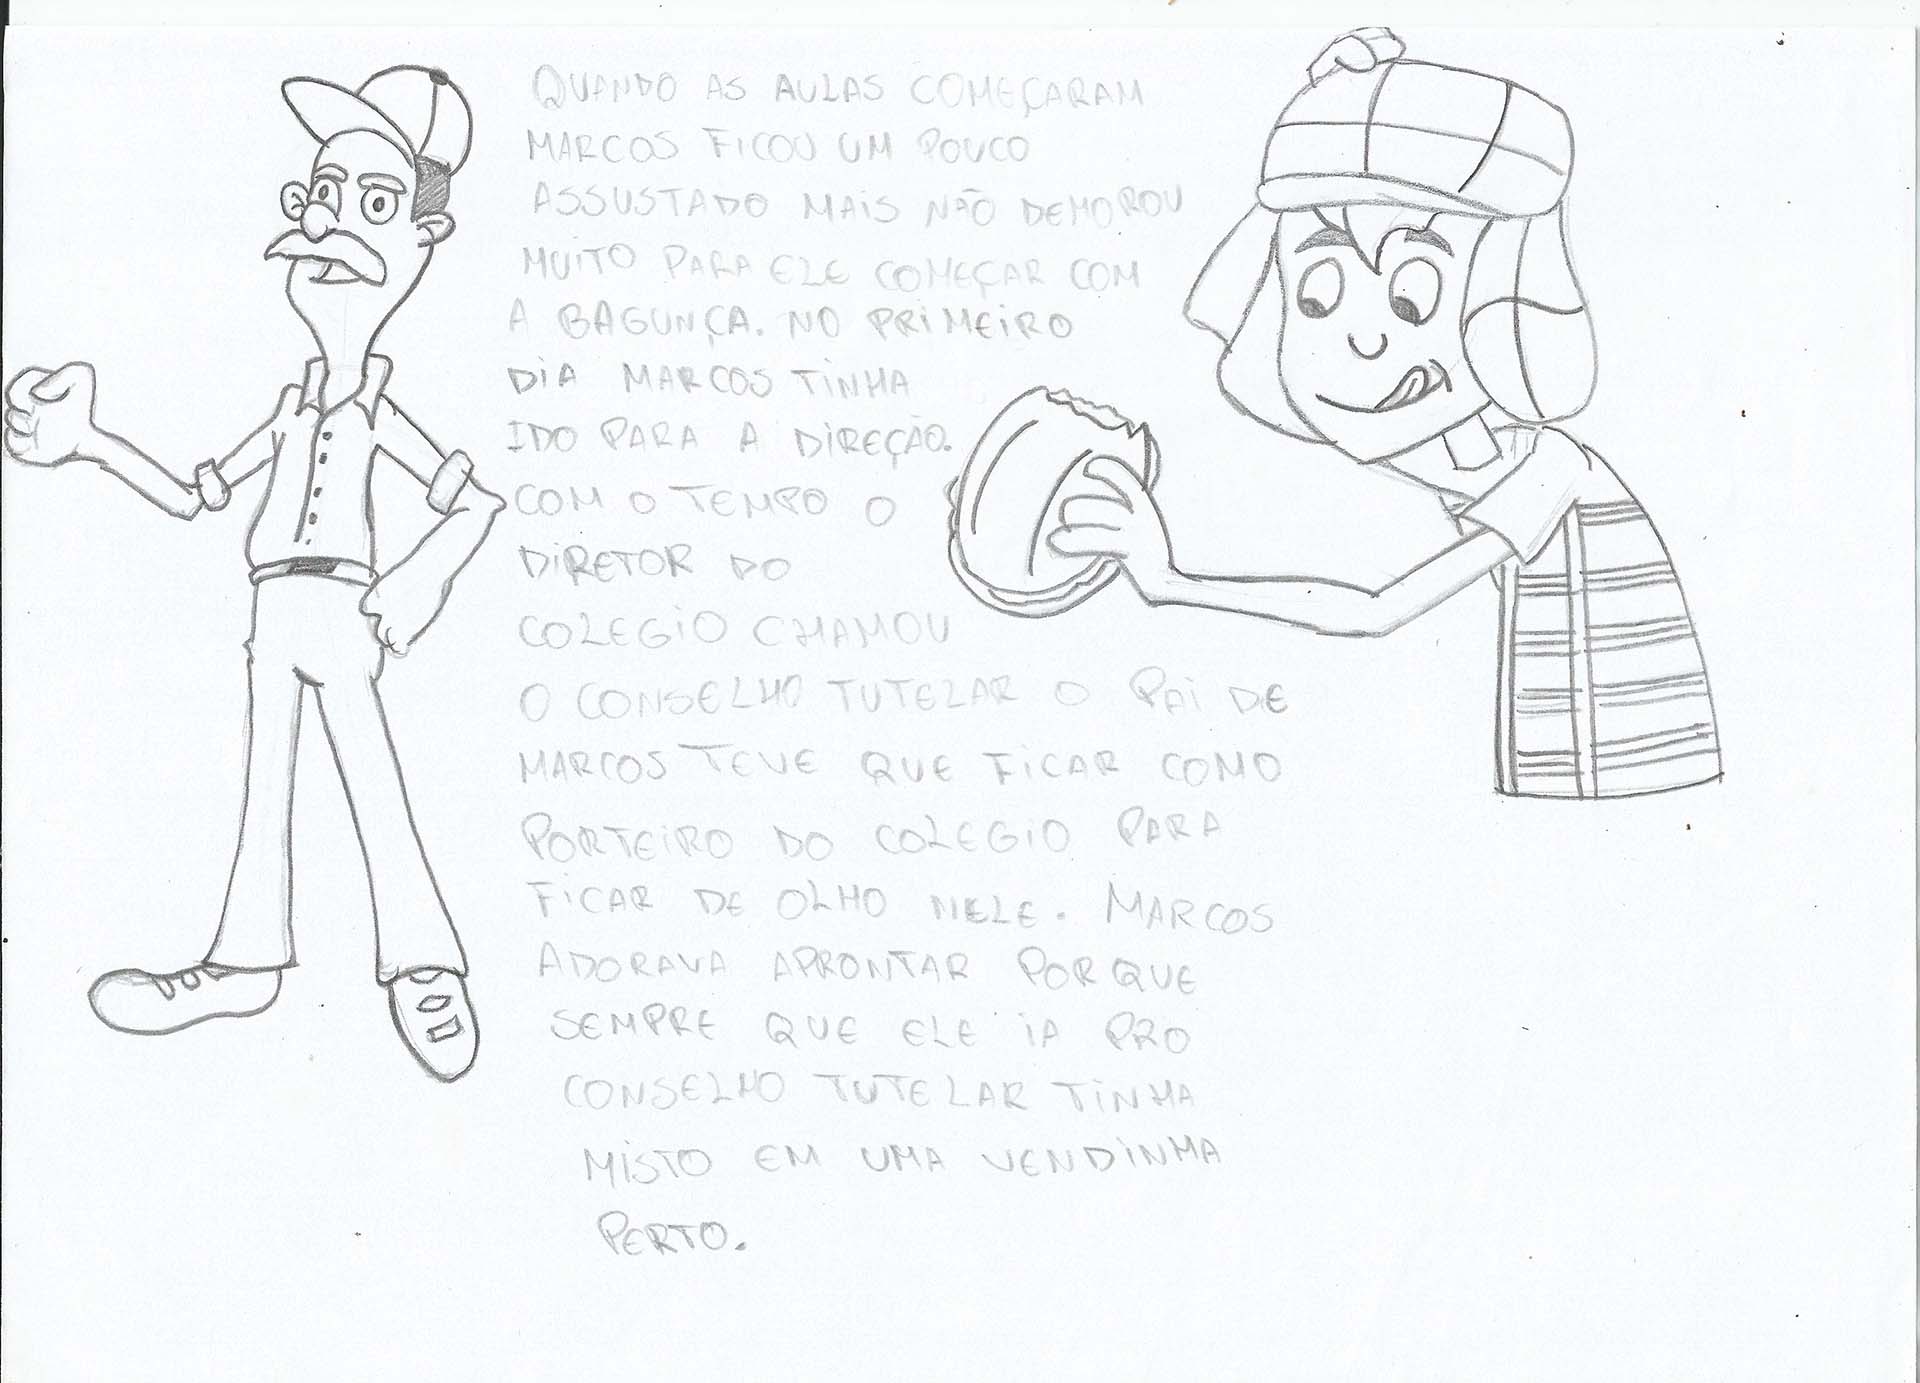 QUANDO AS AULAS COMEÇARAM
MARCOS FICOU UM POUCO
ASSUSTADO MAIS NÃO DEMOROU
MUITO PARA ELE COMEÇAR COM
A BAGUNÇA. NO PRIMEIRO
DIA MARCOS TINHA
IDO PARA A DIREÇÃO.
COM O TEMPO O
DIRETOR DO
COLEGIO CHAMOU
O CONSELHO TUTELAR O PAI DE
MARCOS TEVE QUE FICAR COMO
PORTEIRO DO COLEGIO PARA
FICAR DE OLHO NELE. MARCOS
ADORAVA APRONTAR PORQUE
SEMPRE QUE ELE IA PRO
CONSELHO TUTELAR TINHA
MISTO EM UMA VENDINHA
PERTO.